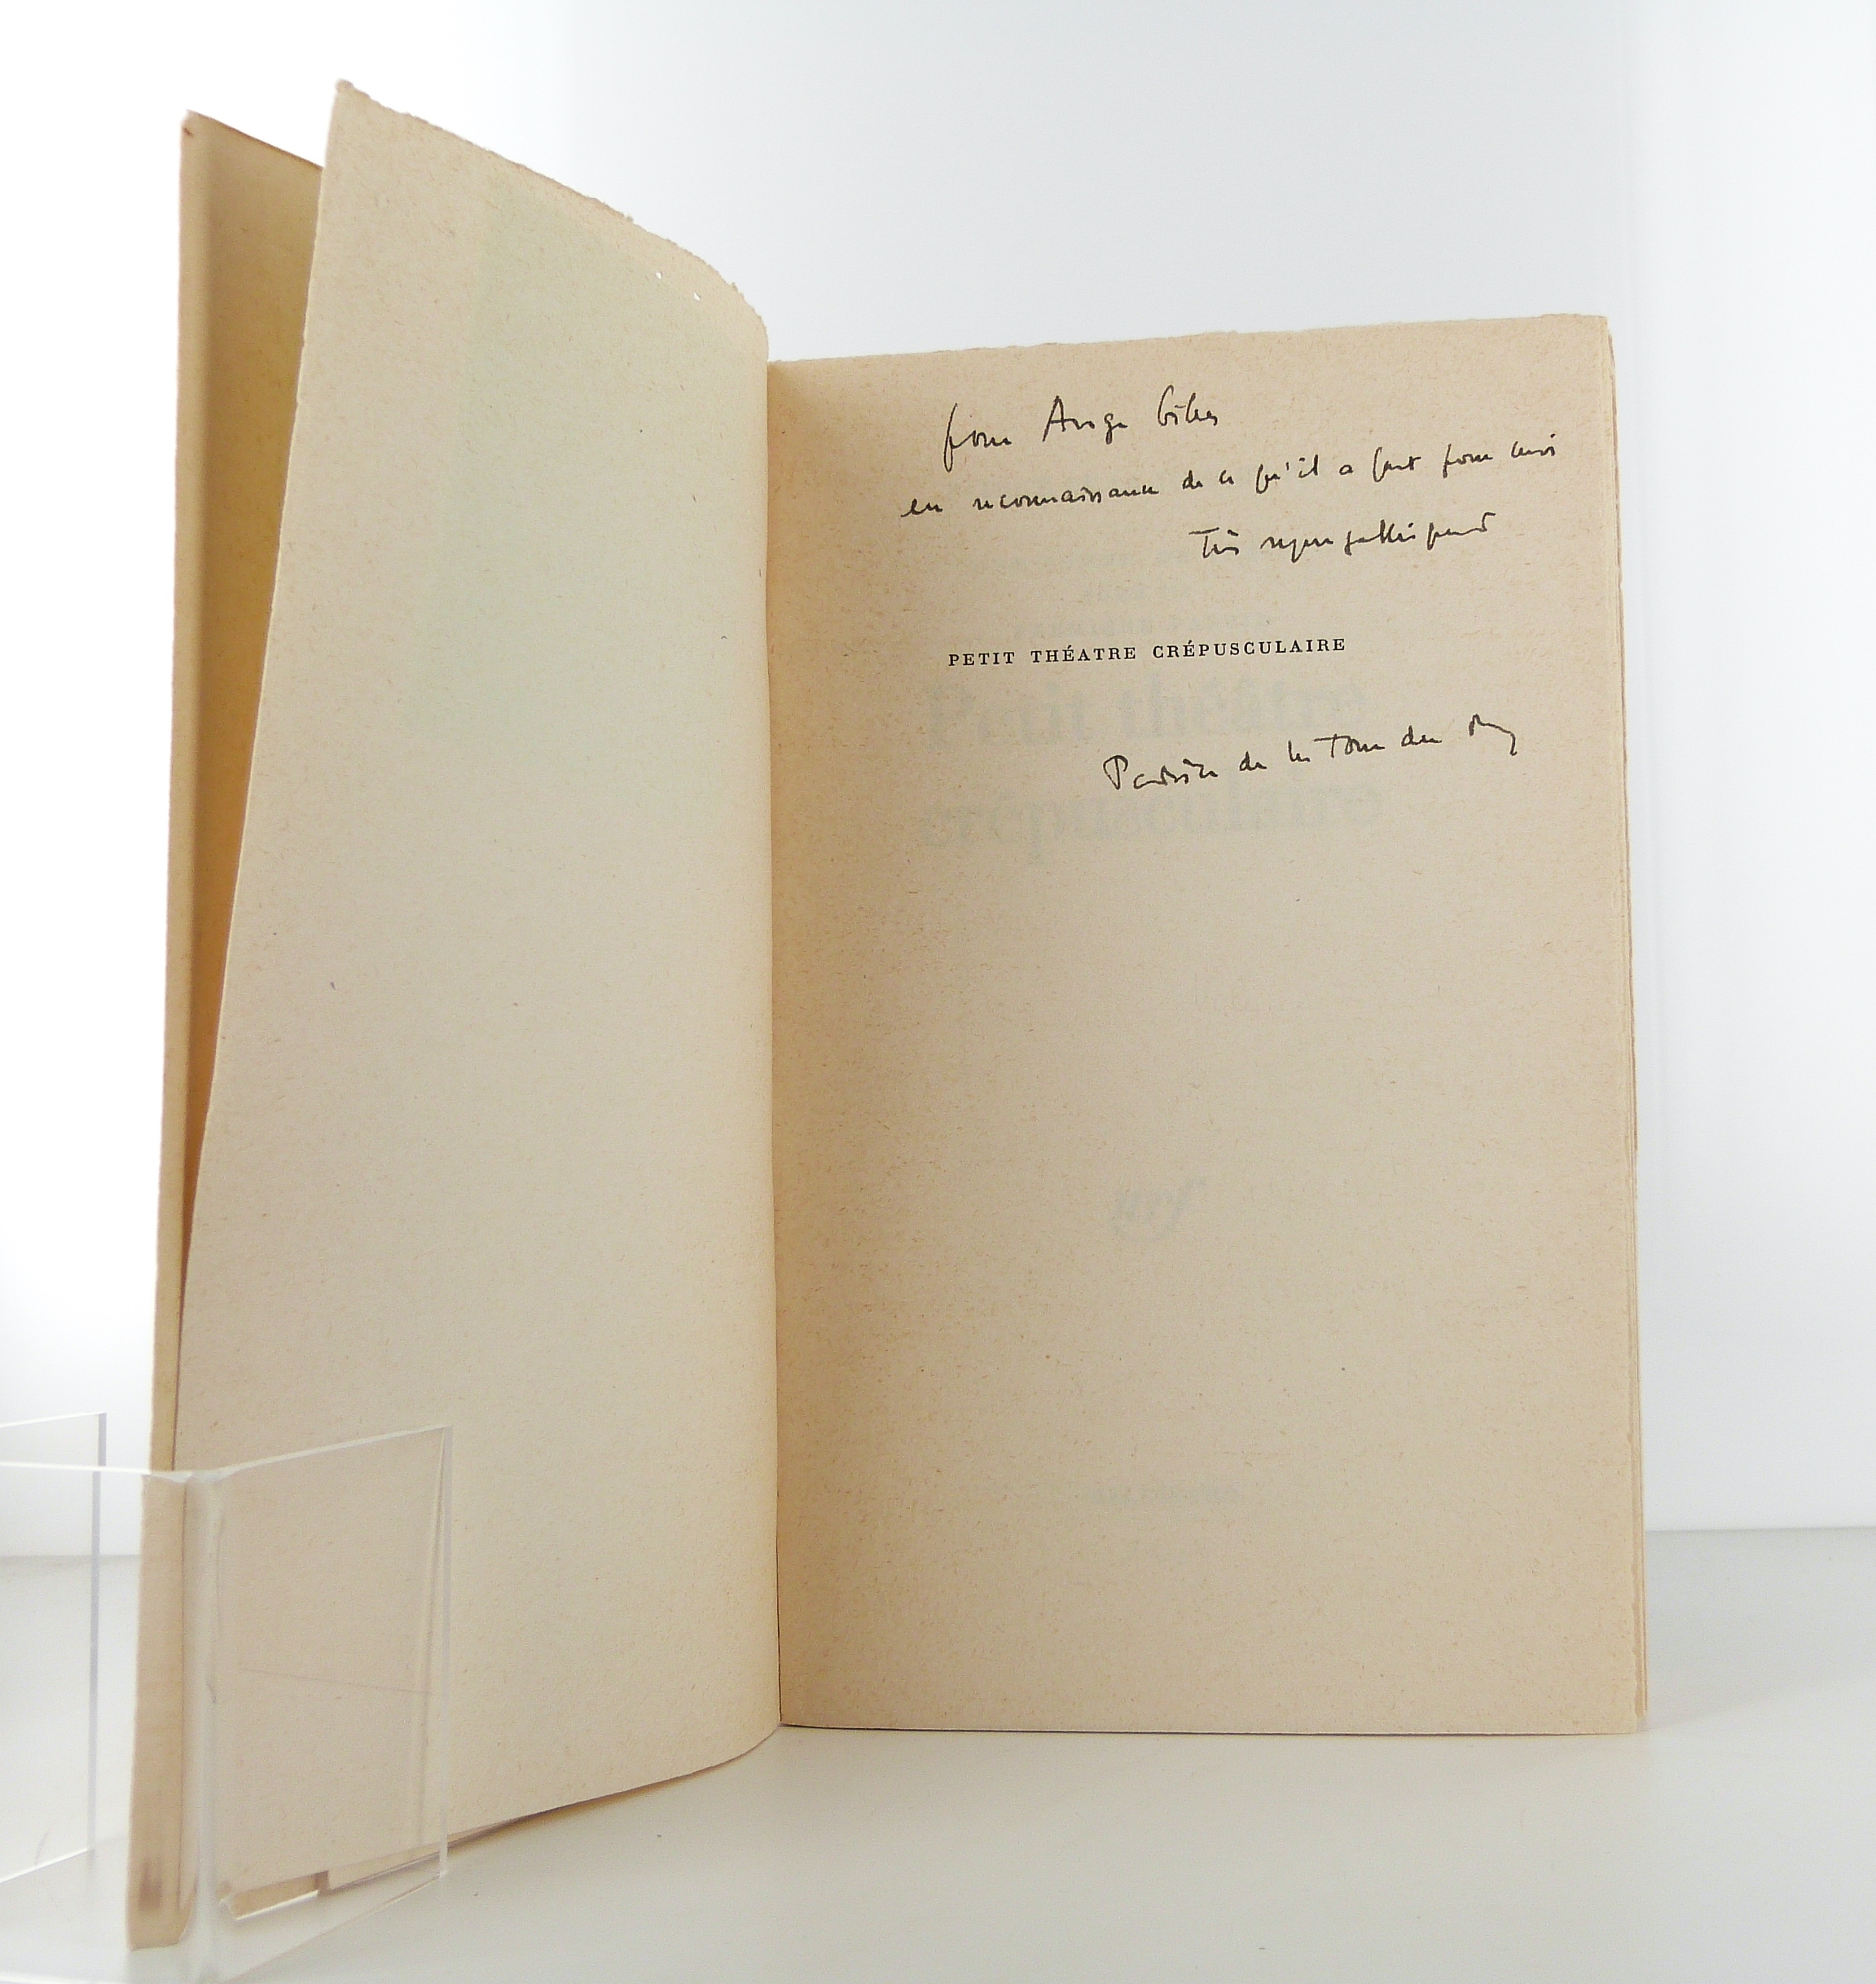 pour Ange Gilles
en reconnaissance de ce qu'il a fait pour moi
Très sympathiquement
PETIT THÉATRE CRÉPUSCULAIRE
Petit théâtre
Patrice de la Tour du Pin
crépusculaire
nrf